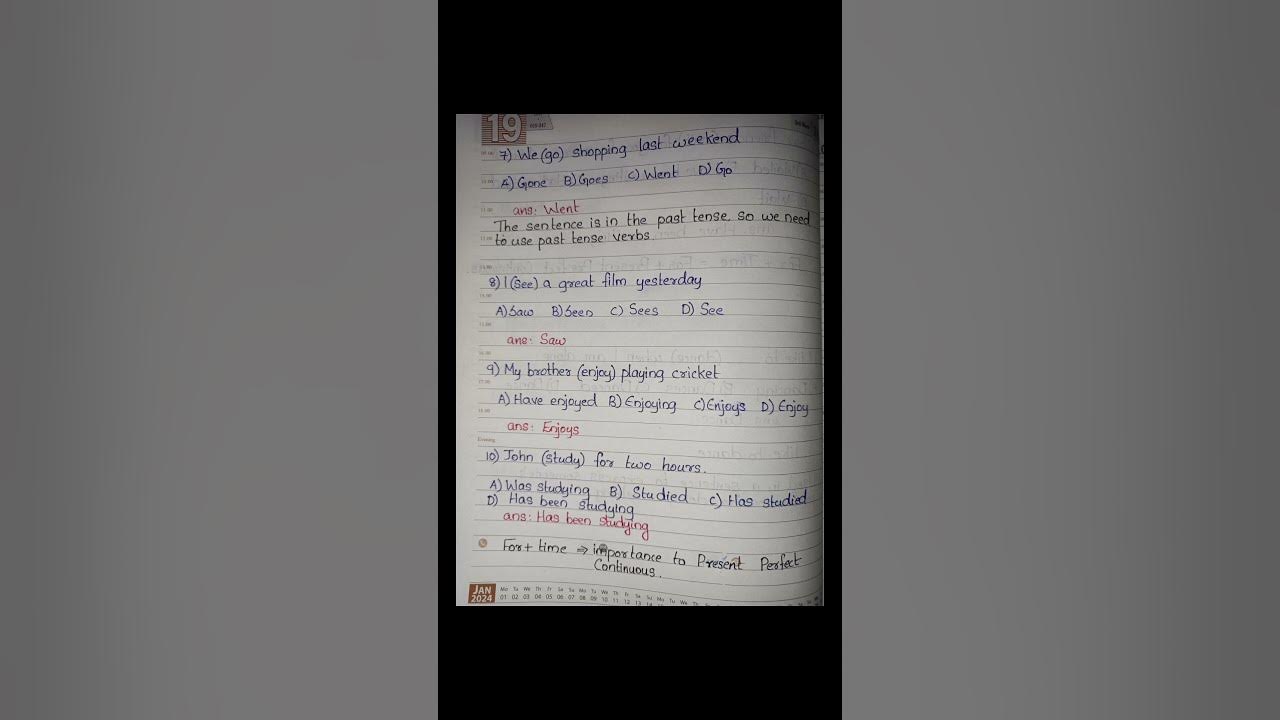 19
7) We (go) shopping last weekend
A) Gone B) Goes C) Went D) Go
ans: Went
The sentence is in the past tense, so we need
to use past tense verbs
8) I (See) a great film yesterday
A) Saw B) Seen C) Sees D) See
ans: Saw
9) My brother (enjoy) playing cricket
A) Have enjoyed B) Enjoying C) Enjoys D) Enjoy
ans: Enjoys
Evening
10) John (study) for two hours.
A) Was studying B) Studied C) Has studied
D) Has been studying
ans: Has been studying
For + time ⇒ importance to Present Perfect
Continuous.
JAN
2024
Mo Tu We Th Fr Sa Su Mo Tu We Th Fr Sa Su Mo Tu We Th
01 02 03 04 05 06 07 08 09 10 11 12 13 14